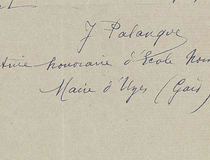 J Palanque
honoraire d'Ecole Nor
Maire d'Uzes (Gard)